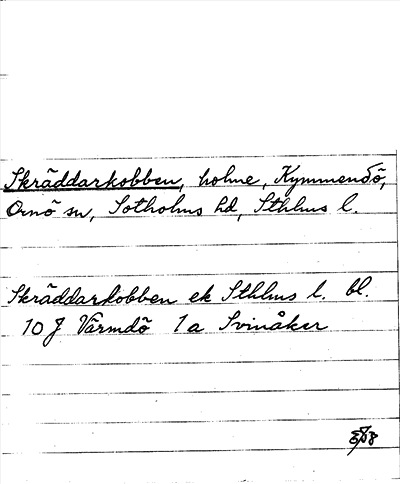 Skräddarkobben, holme, Kymmendö,
Ornö sn, Sotholms hd, Sthlms l.
Skräddarkobben ek Sthlms l. bl.
10 J Värmdö 1a Svinåker